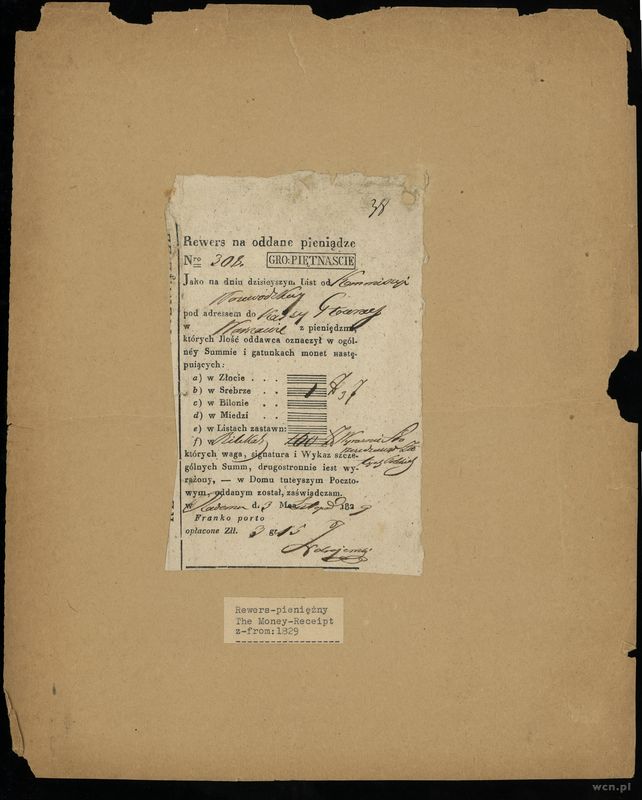 38
Rewers na oddane pieniądze
Nro 308. GRO: PIĘTNASCIE
Jako na dniu dzisieyszym List od Kommissyi
Woiewódzkiey
pod adressem do Kassy Głowney
w Warszawie z pieniędzmi,
których Ilość oddawca oznaczył w ogól-
néy Summie i gatunkach monet nastę-
puiących:
a) w Złocie . . .
b) w Srebrze . . . 1
c) w Bilonie . .
d) w Miedzi . .
e) w Listach zastawn:
f) w
których waga, signatura i Wykaz szcze-
gólnych Summ, drugostronnie iest wy-
rażony, — w Domu tuteyszym Poczto-
wym, oddanym został, zaświadczam.
w Radomiu d. 3 M. Listopad 1829
Franko porto
opłacone Złł. 3 g. 15
Rewers-pieniężny
The Money-Receipt
z-from:1829
wcn.pl